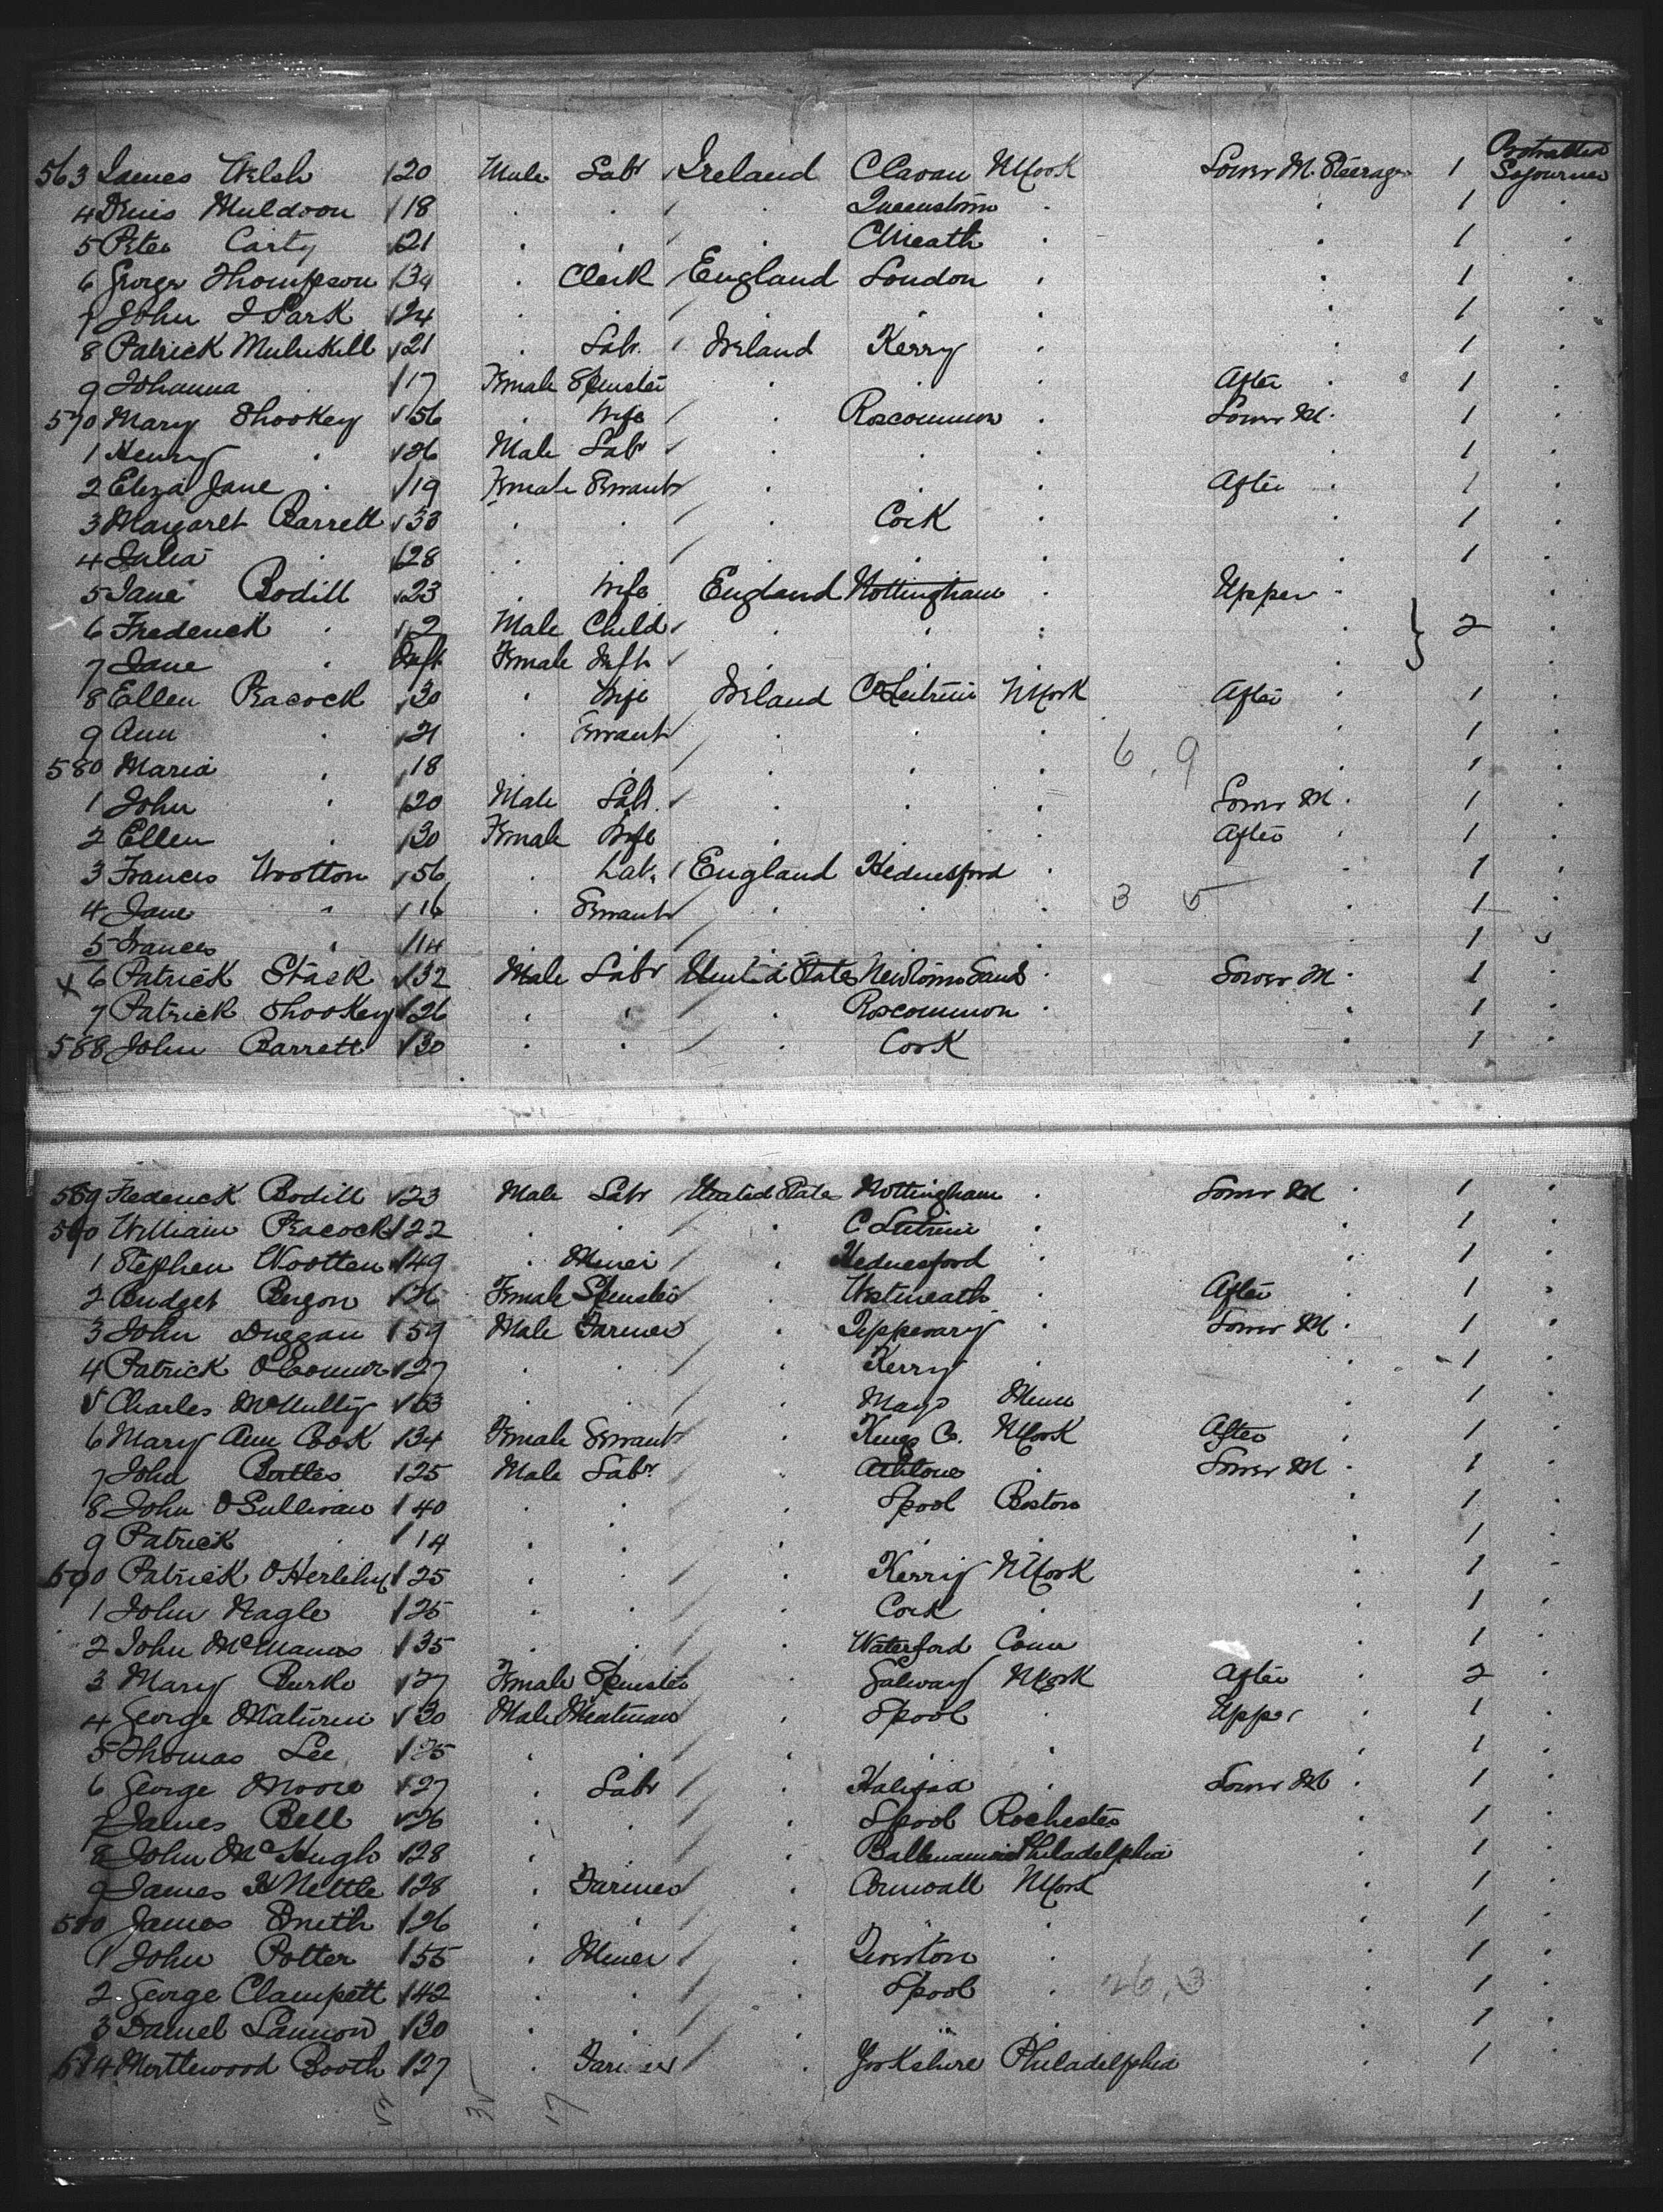 563 James Welsh 20 Male Labr Ireland C Cavan NYork Lower M. Steerage 1 Protracted Sojourner
4 Denis Muldoon 18 Queenstown 1
5 Peter Carty 21 C Meath 1
6 George Thompson 34 Clerk England London 1
7 John I Park 24 1
8 Patrick 21 Labr Ireland Kerry 1
9 Johanna 17 Female Spinster After 1
570 Mary Shookey 56 Wife Roscommon Lower M. 1
1 Henry 26 Male Labr 1
2 Eliza Jane 19 Female Servant After 1
3 Margaret Barrett 33 Cork 1
4 Julia 28 1
5 Jane Bodill 23 Wife England Nottingham Upper
6 Frederick 2 Male Child } 2
7 Jane Inft Female Inft
8 Ellen Peacock 30 Wife Ireland Co Leitrim NYork After 1
9 Ann 21 Servant 1
580 Maria 18 6, 9 1
1 John 20 Male Labr Lower M. 1
2 Ellen 30 Female Wife After 1
3 Frances Wootton 56 Lab. England Hednesford 1
4 Jane 16 Servant 3 5 1
5 Frances 14 1
x 6 Patrick Stack 32 Male Labr United States Newtown Sands Lower M 1
7 Patrick Shookey 26 Roscommon 1
588 John Barrett 30 Cork 1
589 Frederick Bodill 23 Male Labr United State Nottingham Lower M 1
590 William Peacock 22 C Leitrim 1
1 Stephen Wootten 49 Miner Hednesford 1
2 Bridget Bergon 26 Female Spinster Westmeath After 1
3 John Duggan 59 Male Farmer Tipperary Lower M. 1
4 Patrick OConnor 27 Kerry 1
5 Charles McNulty 63 Mayo Minn 1
6 Mary Ann Cook 34 Female Servant Kings Co. NYork After 1
7 John 25 Male Labr Athlone Lower M 1
8 John OSullivan 40 Lpool Boston 1
9 Patrick 14 1
600 Patrick OHerlihy 25 Kerry NYork 1
1 John Nagle 25 Cork 1
2 John McManus 35 Waterford Conn 1
3 Mary Burke 27 Female Spinster Galway NYork After 2
4 George Maturin 30 Male Meatman Lpool Upper 1
5 Thomas Lee 25 1
6 George Moore 27 Labr Halifax Lower M 1
7 James Bell 26 Lpool Rochester 1
8 John McHugh 28 Philadelphia 1
9 James H Nettle 28 Farmer Cornwall NYork 1
James Smith 26 1
1 John Potter 55 Miner 1
2 George Clampett 42 Lpool 26, 3 1
3 Daniel Lannon 30 1
614 Mortlewood Booth 27 Farmer Yorkshire Philadelphia 1